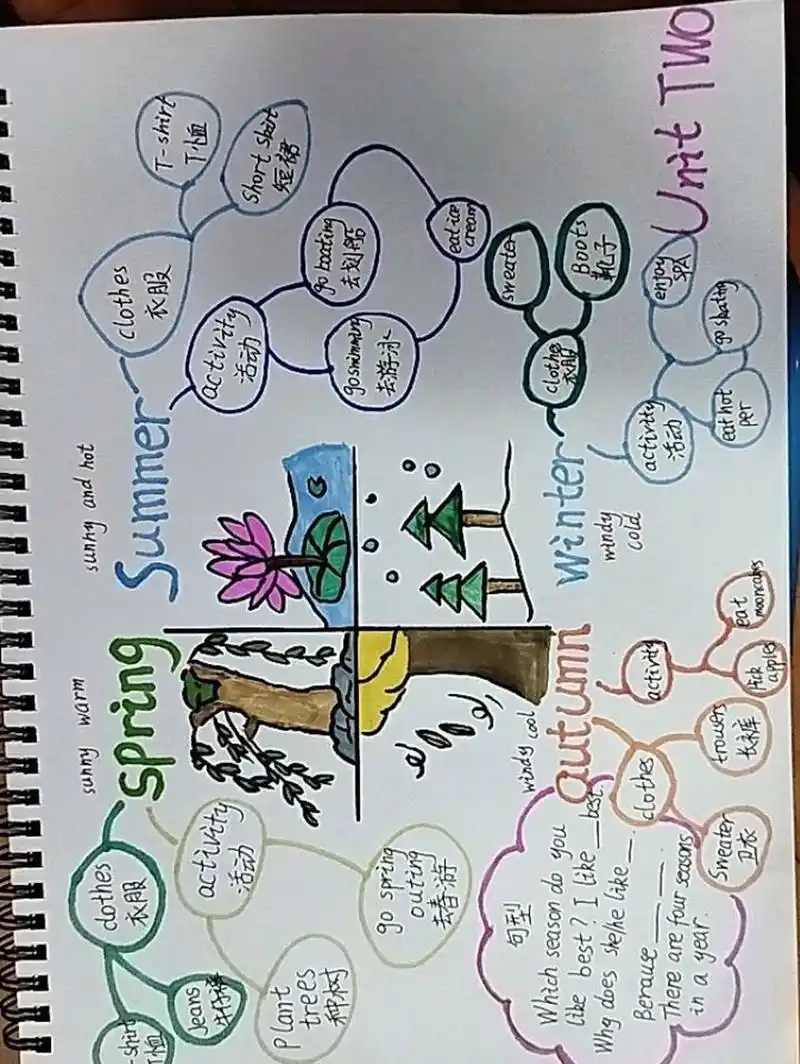 sunny warm
spring
clothes
衣服
-shirt
T恤
Jeans
activity
活动
Plant
trees
种树
go spring
outing
去春游
sunny and hot
Summer
clothes
衣服
T-shirt
T恤
short skirt
短裙
activity
活动
go boating
去划船
go swimming
去游泳
eat ice
cream
windy cool
autumn
activity
eat
mooncakes
Pick
apples
clothes
trousers
长裤
Sweater
卫衣
winter
windy
cold
clothes
衣服
sweater
Boots
靴子
activity
活动
enjoy
SPA
go skating
eat hot
per
句型
Which season do you
like best? I like __ best.
Why does she/he like __.
Berause __ __
There are four seasons
in a year.
Unit TWO